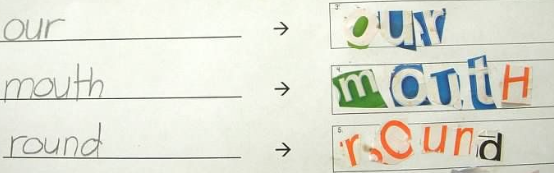 our → our
mouth → moutH
round → rOund